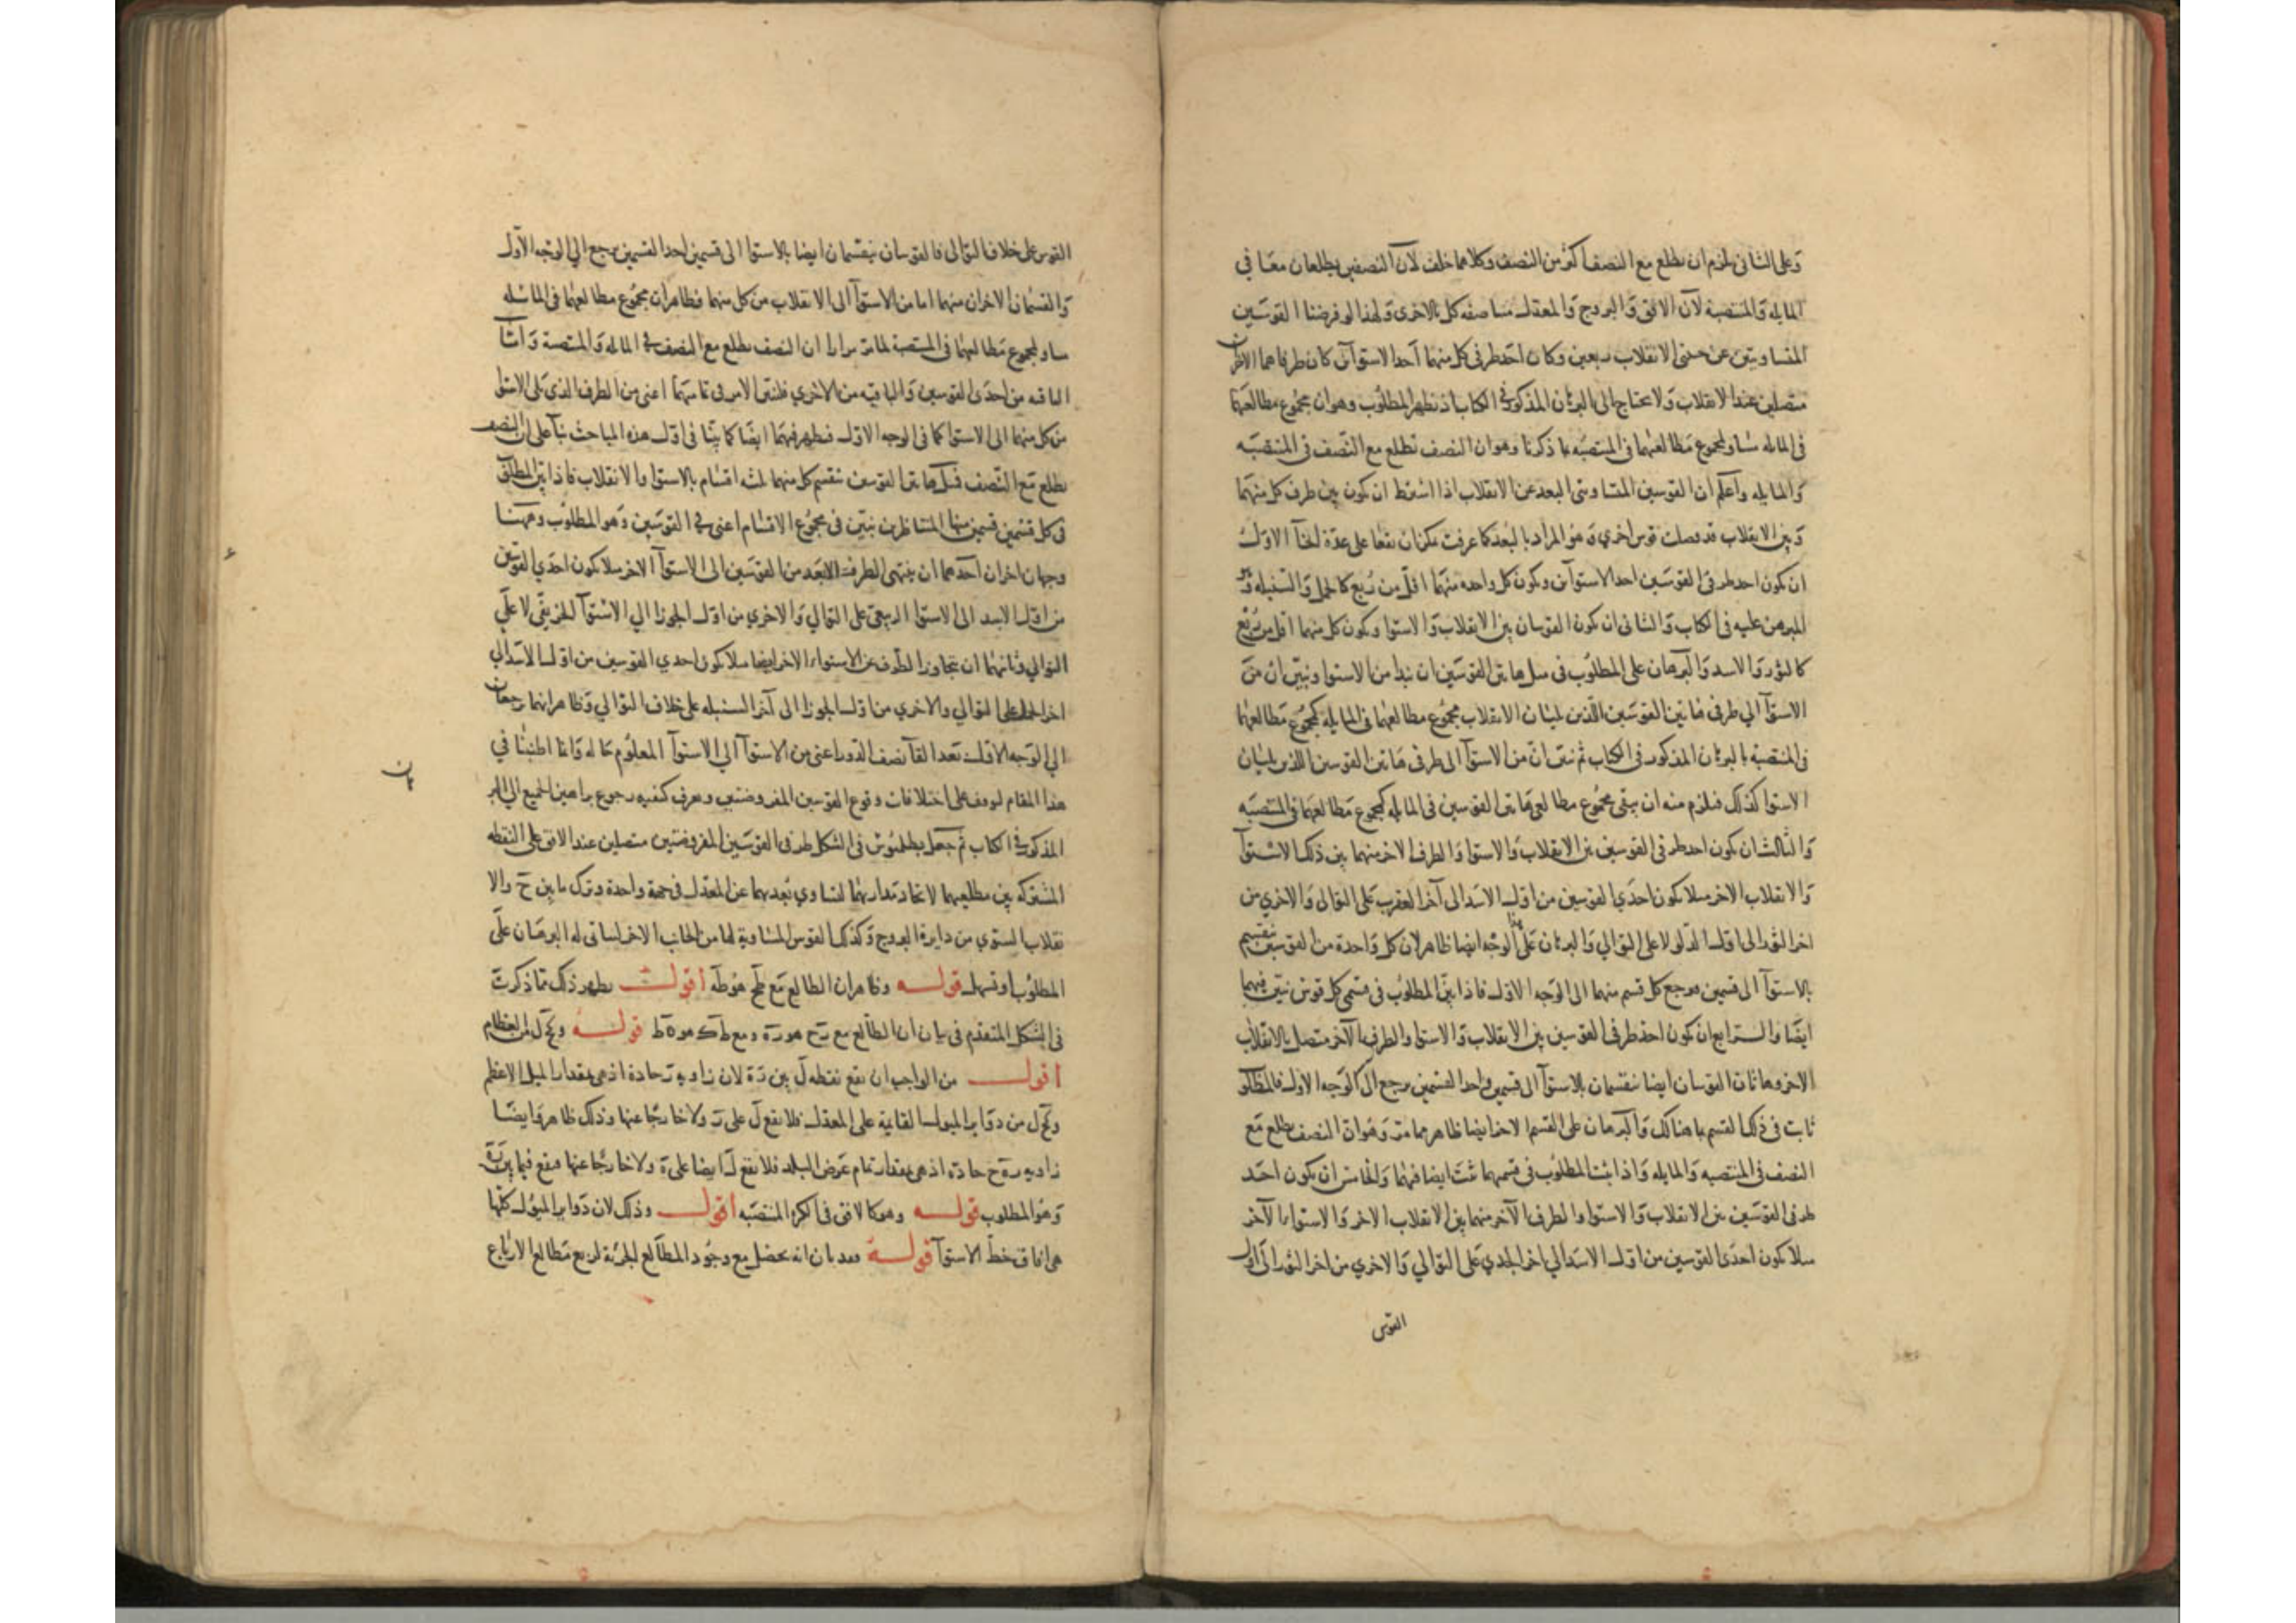 وعلى الثاني يلزم ان يطلع مع النصف اكثر من النصف وكلاهما خلف لان النصفين يطلعان معا في
المايله والمنتصبة لان الافق والبروج والمعدل مناصفه كل بالاخرى ولهذا لو فرضنا القوسين
المتساويتين عن جنبتي الانقلاب ربعين وكان احد طرفي كل منهما احد الاستوآئن كان طرفاهما الاخران
متصلين عند الانقلاب ولا يحتاج الى البرهان المذكور في الكتاب اذ يظهر المطلوب وهو ان مجموع مطالعهما
في المايله يساوي لمجموع مطالعهما في المنتصبه بما ذكرنا وهو ان النصف يطلع مع النصف في المنتصبه
والمايله واعلم ان القوسين المتساويتي البعد عن الانقلاب اذا اشترط ان يكون بين طرف كل منهما
وبين الانقلاب قد فصلت قوس اخري وهو المراد بالبعد كما عرفت يمكن ان يقعا على عدة انحآ الاول
ان يكون احد طرفي القوسين احد الاستوآئن ويكون كل واحده منهما اقل من ربع كالحمل والسنبله وهو
المبرهن عليه في الكتاب والثاني ان يكون القوسان بين الانقلاب والاستوا ويكون كل منهما اقل من ربع
كالثور والاسد والبرهان على المطلوب في مثل هاتين القوسين ان نبدا من الاستوا ونبين ان من
الاستوآ الي طرفي هاتين القوسين اللذين يليان الانقلاب مجموع مطالعهما في المايله كمجموع مطالعهما
في المنتصبة بالبرهان المذكور في الكتاب ثم نبين ان من الاستوآ الى طرفي هاتين القوسين اللذين يليان
الاستوا كذلك فيلزم منه ان يبقى مجموع مطالعي هاتين القوسين في المايله كمجموع مطالعهما في المنتصبه
والثالث ان يكون احد طرفي القوسين بين الانقلاب والاستوا والطرف الاخر منهما بين ذلك الاستوآ
والانقلاب الاخر مثلا يكون احدي القوسين من اول الاسد الى آخر العقرب على التوالى والاخري من
اخر الثور الى اول الدلو لا على التوالي والبرهان على هذا الوجه ايضا ظاهر لان كل واحدة من القوسين تنقسم
بالاستوآ الى قسمين يرجع كل قسم منهما الى الوجه الاول فاذا بين المطلوب في قسمي كل قوس تبين فيهما
ايضا والرابع ان يكون احد طرفي القوسين بين الانقلاب والاستوا والطرف الآخر متصل بالانقلاب
الاخر وهاتان القوسان ايضا تنقسمان بالاستوآ الى قسمين واحد القسمين يرجع الى الوجه الاول فالمطلو
ثابت في ذلك القسم بما هنالك والبرهان على القسم الاخر ايضا ظاهر مما مر وهو ان النصف يطلع مع
النصف في المنتصبه والمايله واذا ثبت المطلوب في قسميهما ثبت ايضا فيهما والخامس ان يكون احد
طرفي القوسين بين الانقلاب والاستوا والطرف الآخر منهما بين الانقلاب الاخر والاستواء الآخر
مثلا يكون احدى القوسين من اول الاسد الي اخر الجدي على التوالي والاخري من اخر الثور الى اول
القوس
القوس على خلاف التوالى فالقوسان ينقسمان ايضا بالاستوا الى قسمين احد القسمين يرجع الي الوجه الاول
والقسمان الاخران منهما اما من الاستوآ الى الانقلاب من كل منهما فظاهر ان مجموع مطالعهما في المائله
يساوي لمجموع مطالعهما في المنتصبة لما مر مرارا ان النصف يطلع مع النصف في المايله والمنتصبة واما
الباقيه من احدى القوسين والباقيه من الاخري فلنبين الامر في تماميهما اعني من الطرف الذي يلى الاستوا
من كل منهما الى الاستوا كما في الوجه الاول فيظهر فيهما ايضا كما بينا في اول هذه المباحث بنآ على ان النصف
يطلع مع النصف فمثل هاتين القوسين تنقسم كل منهما ثلثه اقسام بالاستوا والانقلاب فاذا بين المطلوب
في كل قسمين قسمين منها المتناظرين تبين في مجموع الاقسام اعني في القوسين وهو المطلوب وههنا
وجهان اخران احدهما ان ينتهي الطرف الابعد من القوسين الى الاستوآ الاخر مثلا يكون احدي القوسين
من اول الاسد الى الاستوا الربيعي على التوالي والاخري من اول الجوزا الي الاستوآ الخريفي لا على
التوالي وثانيهما ان يتجاوز الطرف عن الاستواء الاخر ايضا مثلا يكون احدي القوسين من اول الاسد الي
اخر الحمل على التوالي والاخري من اول الجوزا الى آخر السنبله على خلاف التوالي وظاهر انهما يرجعان
الي الوجه الاول بعد القآ نصف الدور اعني من الاستوآ الي الاستوآ المعلوم حاله وانما اطنبنا في
هذا المقام ليوقف على اختلافات وقوع القوسين المفروضتين ويعرف كيفيه رجوع براهين الجميع الي البر
هان
المذكور في الكتاب ثم جعل بطلميوس في الشكل طرفي القوسين المفروضتين متصلين عند الافق على النقطه
المشتركه بين مطلعيهما لاتحاد مداريهما لتساوي بعديهما عن المعدل في جهة واحدة وترك ما بين ح والا
نقلاب الستوي من دايرة البروج وكذلك القوس المساوية لها من الجانب الاخر ليتاتى له البرهان على
المطلوب او تسهل قوله وظاهر ان الطالع مع طح هو طه اقول يظهر ذلك مما ذكرت
في الشكل المتقدم في بيان ان الطالع مع رح هو ره ومع طك هو ه ط قوله وكح ل من العظام
اقول من الواجب ان تقع نقطه ل بين ر ه لان زاويه ر حادة اذ هي بمقدار الميل الاعظم
وكح ل من دواير الميول القايمة على المعدل فلا يقع ل على ر ولا خارجا عنها وذلك ظاهر وايضا
زاويه ر ه ح حادة اذ هي بمقدار تمام عرض البلد فلا يقع ل ايضا على ه ولا خارجا عنها فيقع فيما بين ر ه
وهو المطلوب قوله وهو كالافق في الكرة المنتصبه اقول وذلك لان دواير الميول كلها
هي افاق خط الاستوآ قوله وبعد بان انه يحصل مع وجود المطالع الجزئية لربع مطالع الارباع